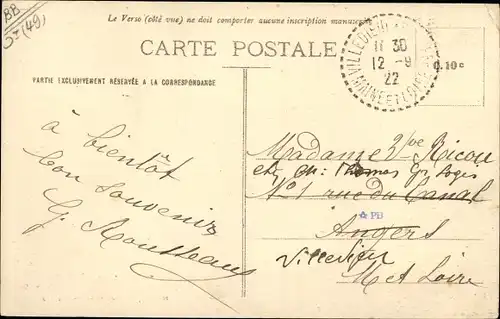 BB
5F (49)
Le Verso (côté vue) ne doit comporter aucune inscription manuscrite
CARTE POSTALE
PARTIE EXCLUSIVEMENT RÉSERVÉE A LA CORRESPONDANCE
VILLEDIEU
11 30
12 - 9
22
MAINE ET LOIRE
0.10c
à bientôt
bon souvenir
G.
Madame Vve Ricou
chez Mr. Thomas
N°1 rue du Canal
PB
Angers
Villedieu
M et Loire